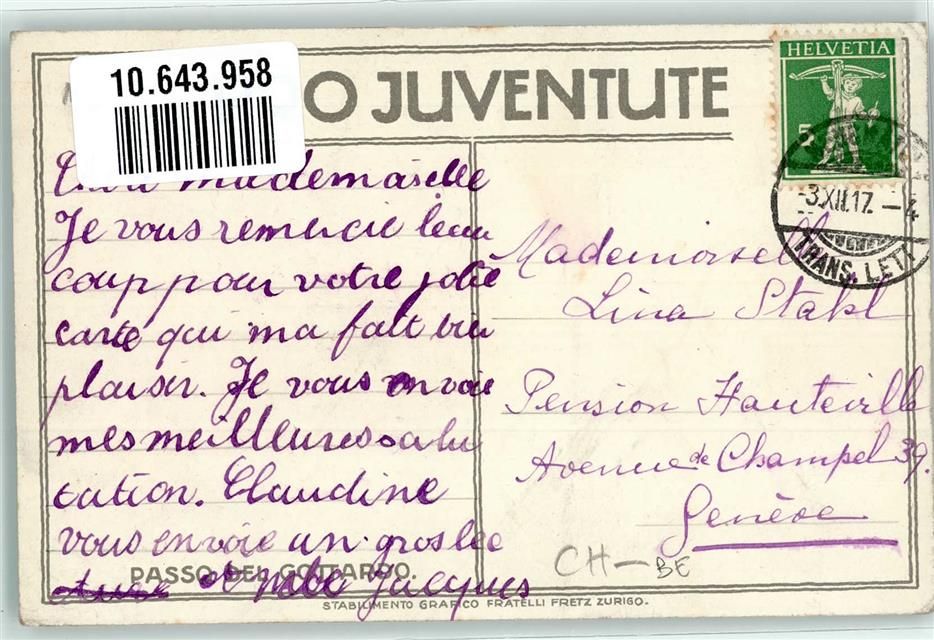 10.643.958
O JUVENTUTE
HELVETIA
5
-3.XII.17.-4
TRANS. LETT
mademaiselle
Je vous remercie beau
coup pour votre jolie
carte qui ma fait bien
plaisir. Je vous envoie
mes meilleures salu
tation. Claudine
vous envoie un gros bec
et Jacques
PASSO DEL GOTTARDO.
Mademoisell
Lina Stahl
Pension Hauteville
Avenue de Champel 39.
Genève
CH-BE
STABILIMENTO GRAFICO FRATELLI FRETZ ZURIGO.